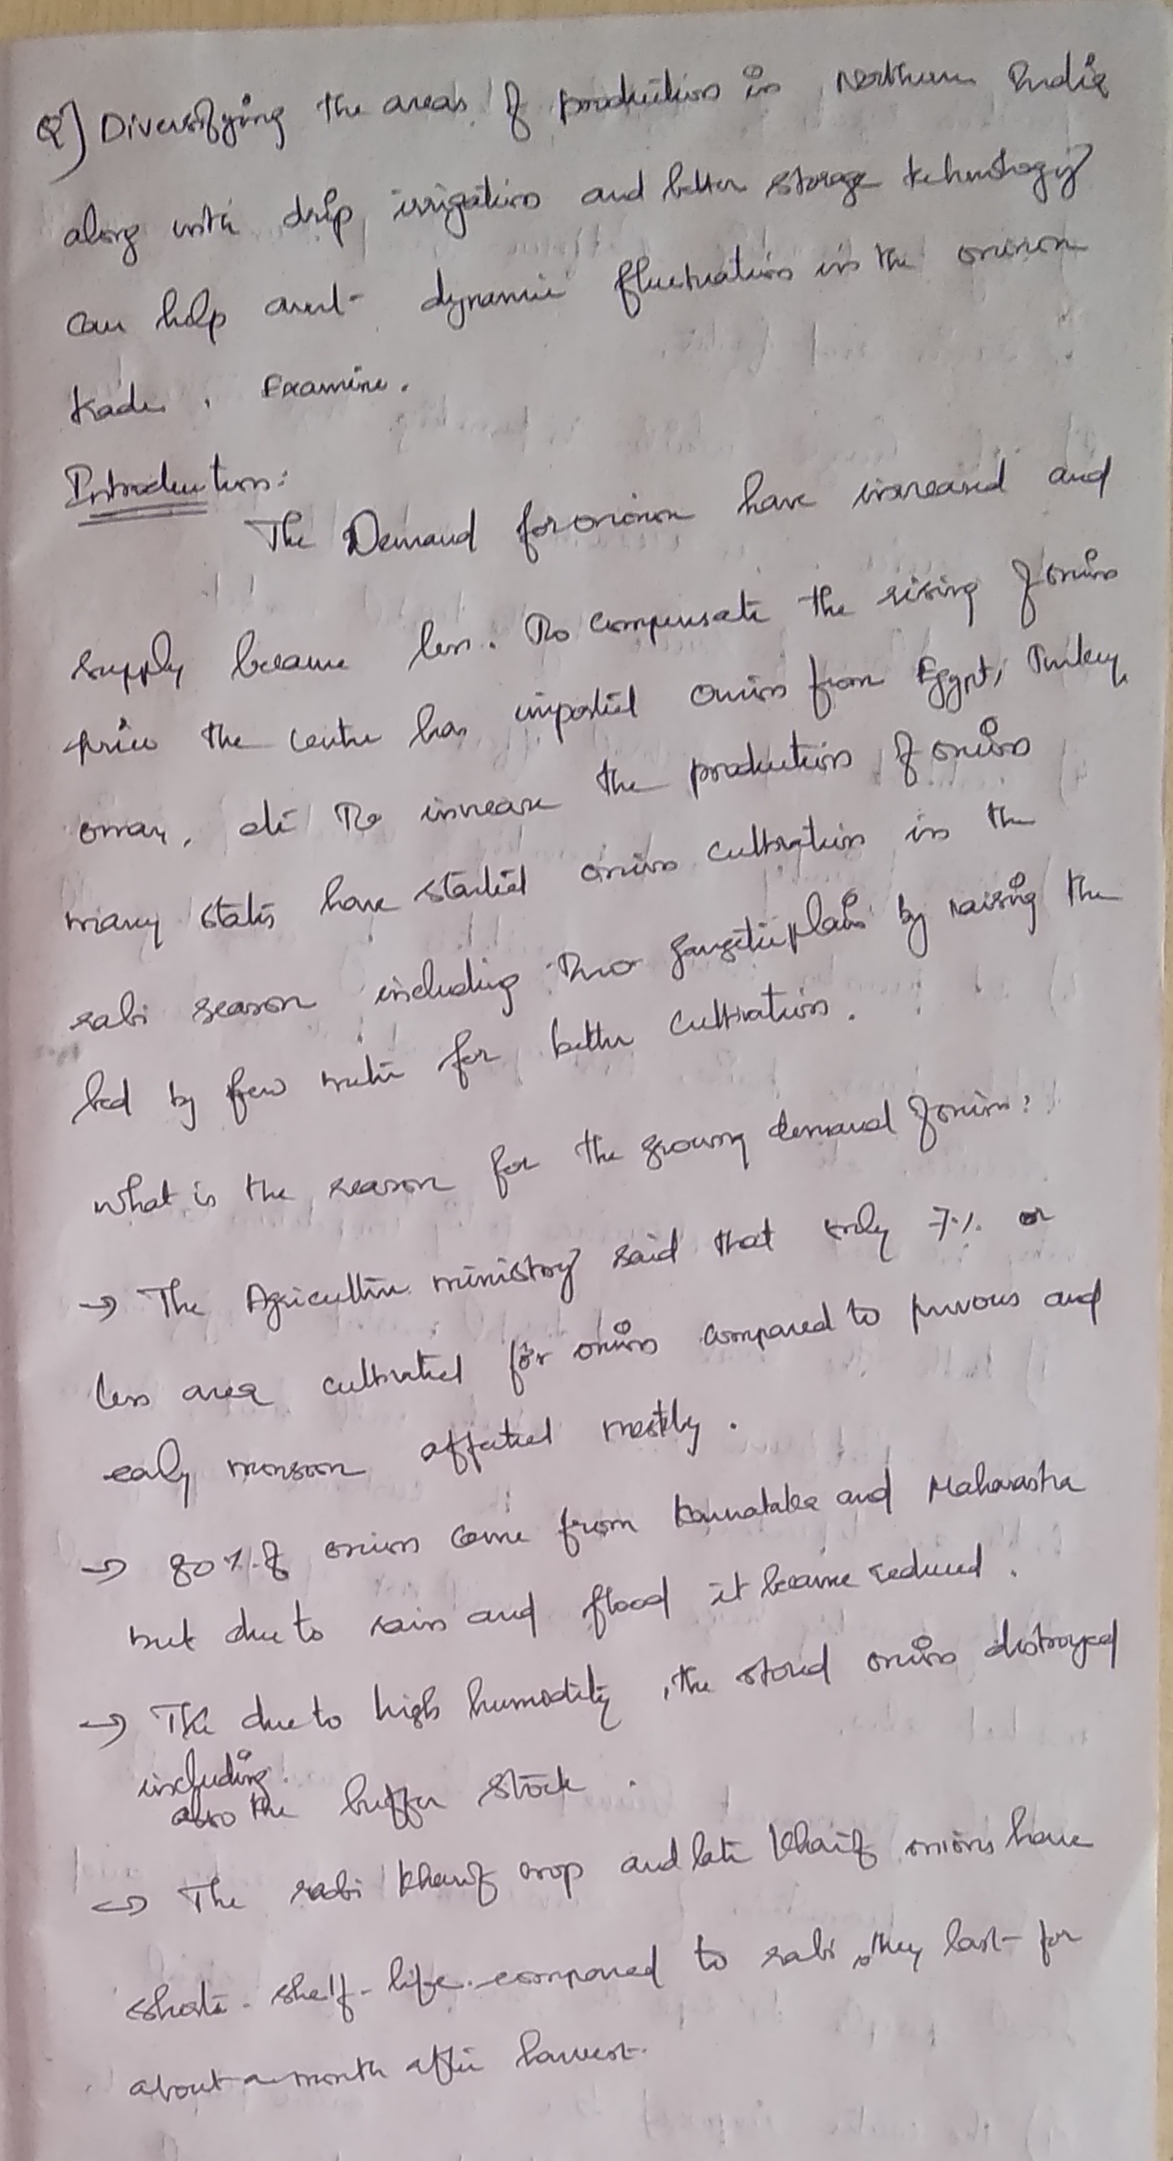 Q) Diversifying the areas of production in Northern India
along with drip irrigation and better storage technology
can help avert dynamic fluctuation in the onion
trade. Examine.
Introduction:
The Demand for onion have increased and
supply became less. To compensate the rising of onion
price the centre has imported onion from Egypt, Turkey,
oman, etc To increase the production of onion
many states have started onion cultivation in the
rabi season including Indo gangetic plain by raising the
bed by few meter for better cultivation.
what is the reason for the growing demand of onion:
→ The Agriculture ministry said that only 7% or
less area cultivated for onion compared to previous and
early monsoon affected mostly.
→ 80% of onion come from Karnataka and Maharastra
but due to rain and flood it became reduced.
→ The due to high humidity, the stored onion distroyed
including
also the buffer stock.
→ The rabi Kharif crop and late Kharif onions have
shorte shelf-life compared to rabi, they last for
about a month after harvest.